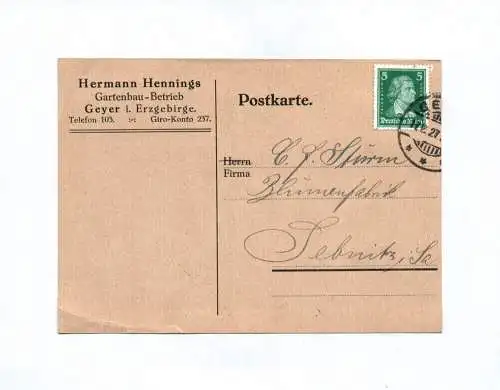 Hermann Hennings
Gartenbau-Betrieb
Geyer i. Erzgebirge.
Telefon 103. Giro-Konto 237.
Postkarte.
5 5
Deutsches Reich
Herrn
Firma
C. L. Sturm
Blumenfabrik
Sebnitz i. Sa